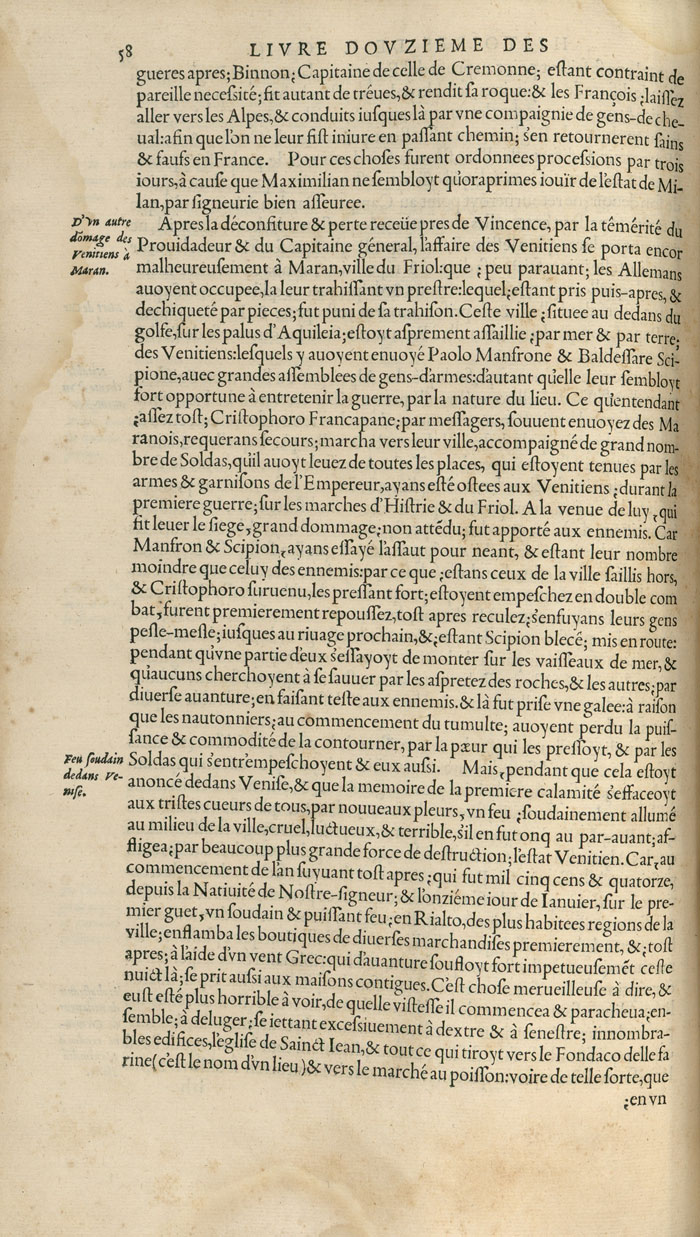 58 LIVRE DOVZIEME DES
gueres apres; Binnon; Capitaine de celle de Cremonne; eſtant contraint de
pareille neceſsité; fit autant de tréues, & rendit ſa roque: & les François ; laiſſez
aller vers les Alpes, & conduits iuſques là par vne compaignie de gens-de che-
ual: afin que lon ne leur fiſt iniure en paſſant chemin; s'en retournerent ſains
& ſaufs en France. Pour ces choſes furent ordonnees proceſsions par trois
iours, à cauſe que Maximilian ne ſembloyt qu'oraprimes iouïr de l'eſtat de Mi-
lan, par ſigneurie bien aſſeuree.
D'vn autre
dõmage des
Venitiens à
Maran.
Apres la déconfiture & perte receüe pres de Vincence, par la témérité du
Prouidadeur & du Capitaine géneral, l'affaire des Venitiens ſe porta encor
malheureuſement à Maran, ville du Friol: que ; peu parauant; les Allemans
auoyent occupee, la leur trahiſſant vn preſtre: lequel; eſtant pris puis-apres, &
dechiqueté par pieces; fut puni de ſa trahiſon. Ceſte ville ; ſituee au dedans du
golfe, ſur les palus d'Aquileia; eſtoyt aſprement aſſaillie ; par mer & par terre;
des Venitiens: leſquels y auoyent enuoyé Paolo Manfrone & Baldeſſare Sci-
pione, auec grandes aſſemblees de gens-d'armes: d'autant qu'elle leur ſembloyt
fort opportune à entretenir la guerre, par la nature du lieu. Ce qu'entendant
; aſſez toſt; Criſtophoro Francapane; par meſſagers, ſouuent enuoyez des Ma
ranois, requerans ſecours; marcha vers leur ville, accompaigné de grand nom-
bre de Soldas, qu'il auoyt leuez de toutes les places, qui eſtoyent tenues par les
armes & garniſons de l'Empereur, ayans eſté oſtees aux Venitiens ; durant la
premiere guerre; ſur les marches d'Hiſtrie & du Friol. A la venue de luy , qui
fit leuer le ſiege, grand dommage; non attẽdu; fut apporté aux ennemis. Car
Manfron & Scipion, ayans eſſayé l'aſſaut pour neant, & eſtant leur nombre
moindre que celuy des ennemis: par ce que ; eſtans ceux de la ville ſaillis hors,
& Criſtophoro ſuruenu, les preſſant fort; eſtoyent empeſchez en double com
bat, furent premierement repouſſez, toſt apres reculez; s'enfuyans leurs gens
peſle-meſle; iuſques au riuage prochain, &; eſtant Scipion blecé; mis en route:
pendant qu'vne partie d'eux s'eſſayoyt de monter ſur les vaiſſeaux de mer, &
qu'aucuns cherchoyent à ſe ſauuer par les aſpretez des roches, & les autres; par
diuerſe auanture; en faiſant teſte aux ennemis. & là fut priſe vne galee: à raiſon
que les nautonniers; au commencement du tumulte; auoyent perdu la puiſ-
ſance & commodité de la contourner, par la pæur qui les preſſoyt, & par les
Soldas qui s'entrempeſchoyent & eux auſsi. Mais, pendant que cela eſtoyt
Feu ſoudain
dedans Ve-
niſe.
anoncé dedans Veniſe, & que la memoire de la premiere calamité s'effaceoyt
aux triſtes cueurs de tous, par nouueaux pleurs, vn feu ; ſoudainement allumé
au milieu de la ville, cruel, luctueux, & terrible, s'il en fut onq au par-auant; af-
fligea; par beaucoup plus grande force de deſtruction; l'eſtat Venitien. Car, au
commencement de l'an ſuyuant toſt apres; qui fut mil cinq cens & quatorze,
depuis la Natiuité de Noſtre-ſigneur; & l'onziéme iour de Ianuier, ſur le pre-
mier guet, vn ſoudain & puiſſant feu; en Rialto, des plus habitees regions de la
ville; enflamba les boutiques de diuerſes marchandiſes premierement, &; toſt
apres; à l'aide d'vn vent Grec: qui d'auanture ſoufloyt fort impetueuſemẽt ceſte
nuict là; ſe prit auſsi aux maiſons contigues. C'eſt choſe merueilleuſe à dire, &
euſt eſté plus horrible à voir, de quelle viſteſſe il commencea & paracheua; en-
ſemble; à deluger; ſe iettant exceſsiuement à dextre & à ſeneſtre; innombra-
bles edifices, l'égliſe de Sainct Iean, & tout ce qui tiroyt vers le Fondaco delle fa
rine (c'eſt le nom d'vn lieu) & vers le marché au poiſſon: voire de telle ſorte, que
; en vn